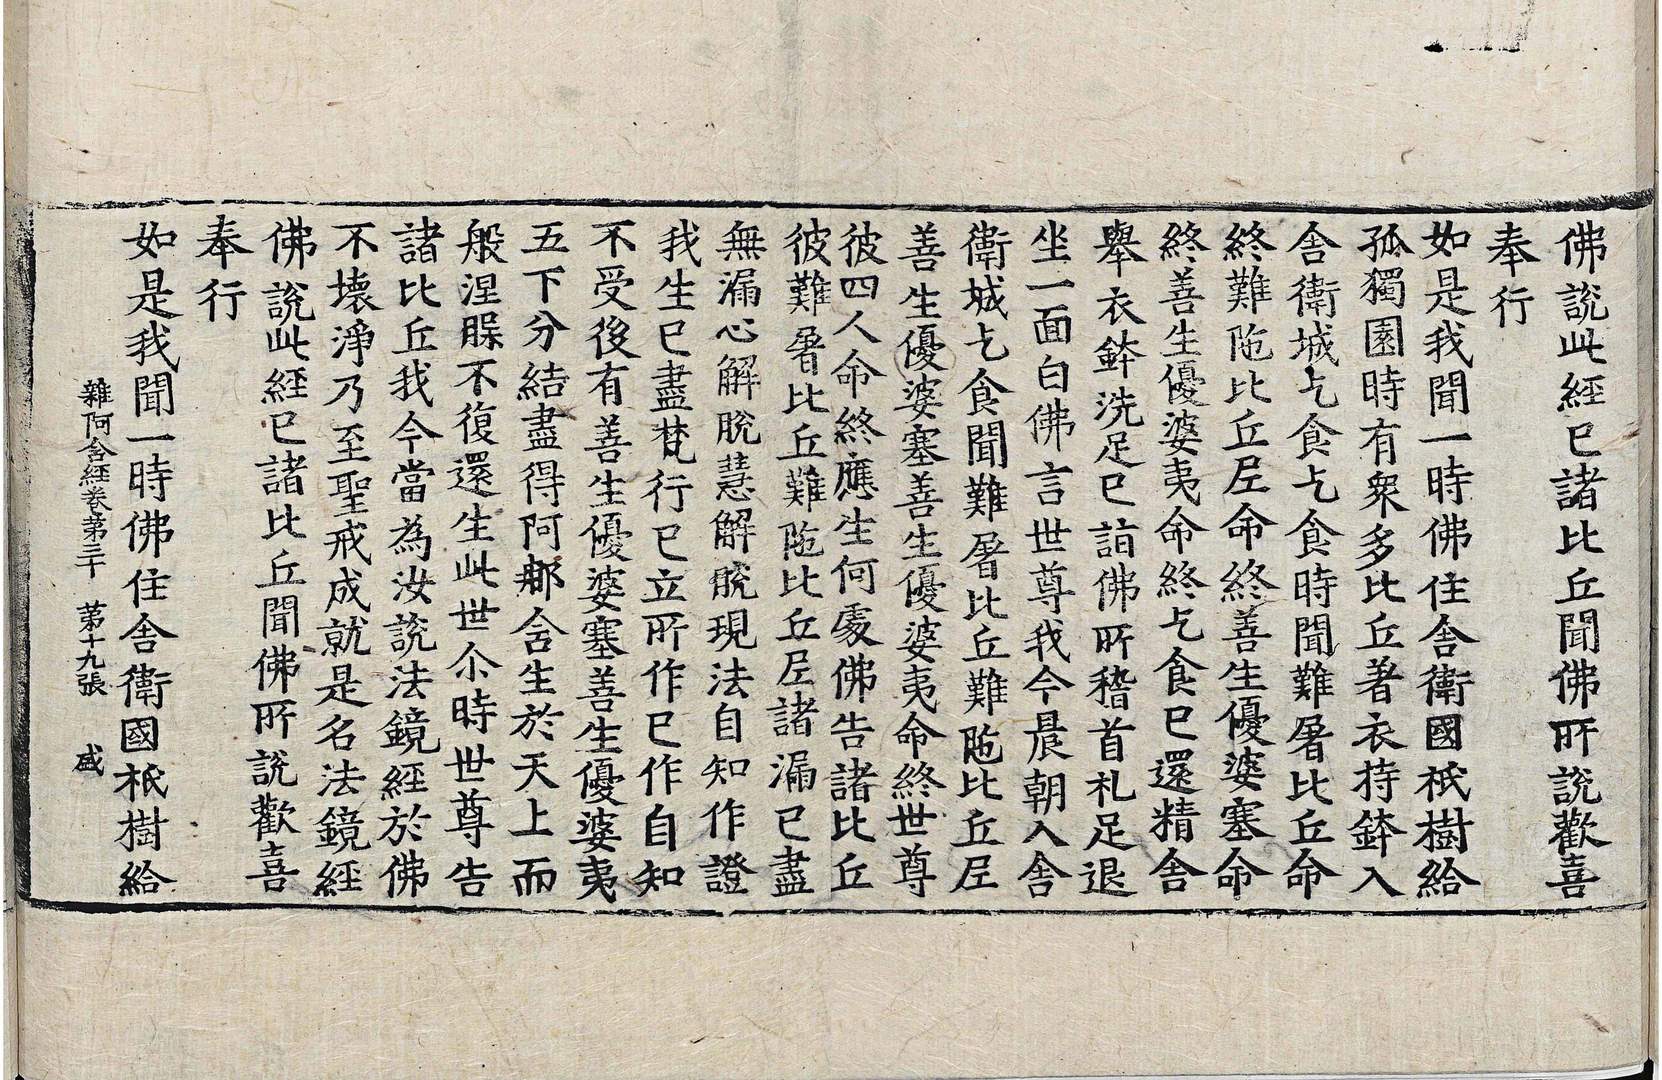 佛說此經已諸比丘聞佛所說歡喜
奉行
如是我聞一時佛住舍衛國祇樹給
孤獨園時有衆多比丘著衣持鉢入
舍衛城乞食乞食時聞難屠比丘命
終難陁比丘尼命終善生優婆塞命
終善生優婆夷命終乞食已還精舍
舉衣鉢洗足已詣佛所稽首礼足退
坐一面白佛言世尊我今晨朝入舍
衛城乞食聞難屠比丘難陁比丘尼
善生優婆塞善生優婆夷命終世尊
彼四人命終應生何處佛告諸比丘
彼難屠比丘難陁比丘尼諸漏已盡
無漏心解脫慧解脫現法自知作證
我生已盡梵行已立所作已作自知
不受後有善生優婆塞善生優婆夷
五下分結盡得阿那含生於天上而
般涅槃不復還生此世尒時世尊告
諸比丘我今當為汝說法鏡經於佛
不壞淨乃至聖戒成就是名法鏡經
佛說此經已諸比丘聞佛所說歡喜
奉行
如是我聞一時佛住舍衛國祇樹給
雜阿含經卷第三十 第十九張 盛